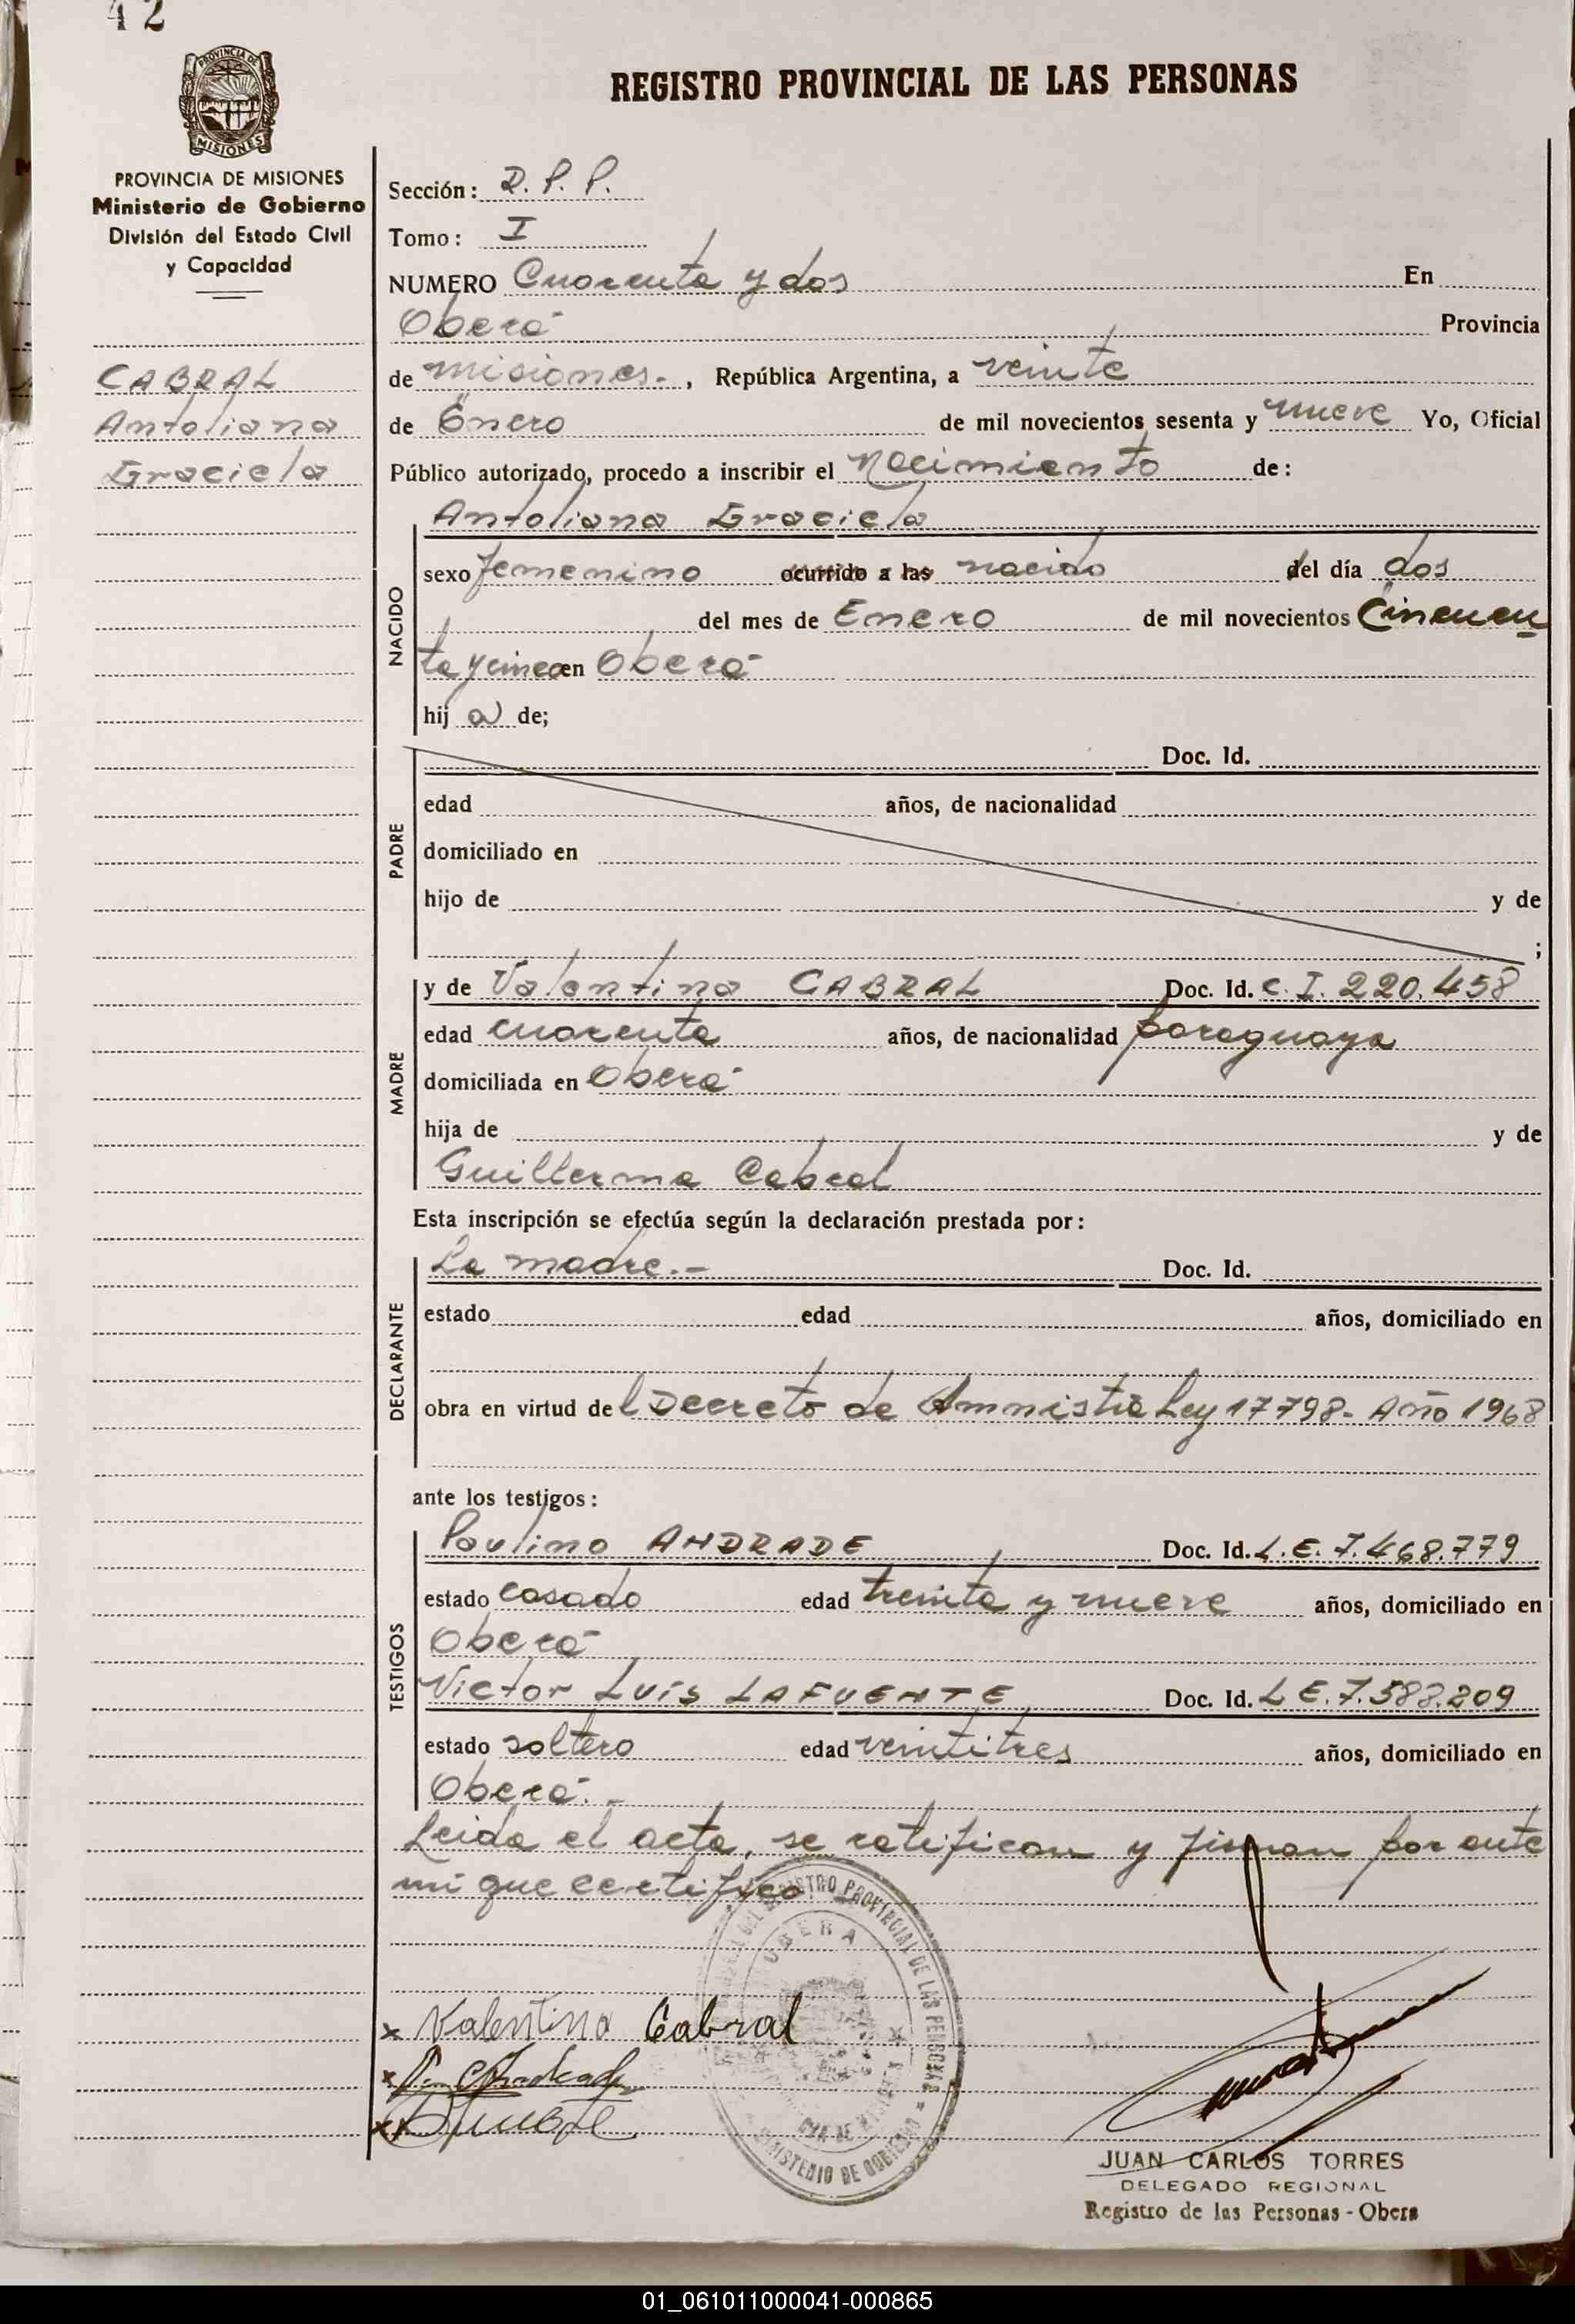 42
PROVINCIA DE
MISIONES
REGISTRO PROVINCIAL DE LAS PERSONAS
PROVINCIA DE MISIONES
Ministerio de Gobierno
División del Estado Civil
y Capacidad
CABRAL
Antoliana
Graciela
Sección: D. P. P.
Tomo: I
NUMERO Cuarenta y dos En
Oberá Provincia
de misiones.-, República Argentina, a veinte
de Enero de mil novecientos sesenta y nueve Yo, Oficial
Público autorizado, procedo a inscribir el Nacimiento de:
Antoliana Graciela
NACIDO
sexo femenino ocurrido a las nacido del día dos
del mes de Enero de mil novecientos Cincuen
ta y cinco en Oberá
hij a de;
PADRE
Doc. Id.
edad años, de nacionalidad
domiciliado en
hijo de y de
;
MADRE
y de Valentina CABRAL Doc. Id. C. I. 220.458
edad cuarenta años, de nacionalidad paraguaya
domiciliada en Oberá
hija de y de
Guillerma Cabral
Esta inscripción se efectúa según la declaración prestada por:
DECLARANTE
La madre.- Doc. Id.
estado edad años, domiciliado en
obra en virtud de l Decreto de Amnistia Ley 17798- Año 1968
ante los testigos:
TESTIGOS
Paulino ANDRADE Doc. Id. L. E. 7.468.779
estado casado edad treinta y nueve años, domiciliado en
Oberá
Victor Luis LAFUENTE Doc. Id. L E. 7.583.209
estado soltero edad veintitres años, domiciliado en
Oberá.-
Leida el acta, se ratifican y firman por ante
mi que certifico
REGISTRO PROVINCIAL DE LAS PERSONAS
OBERA
MINISTERIO DE GOBIERNO
x Valentina Cabral
x
xx
JUAN CARLOS TORRES
DELEGADO REGIONAL
Registro de las Personas - Obera
01_061011000041-000865